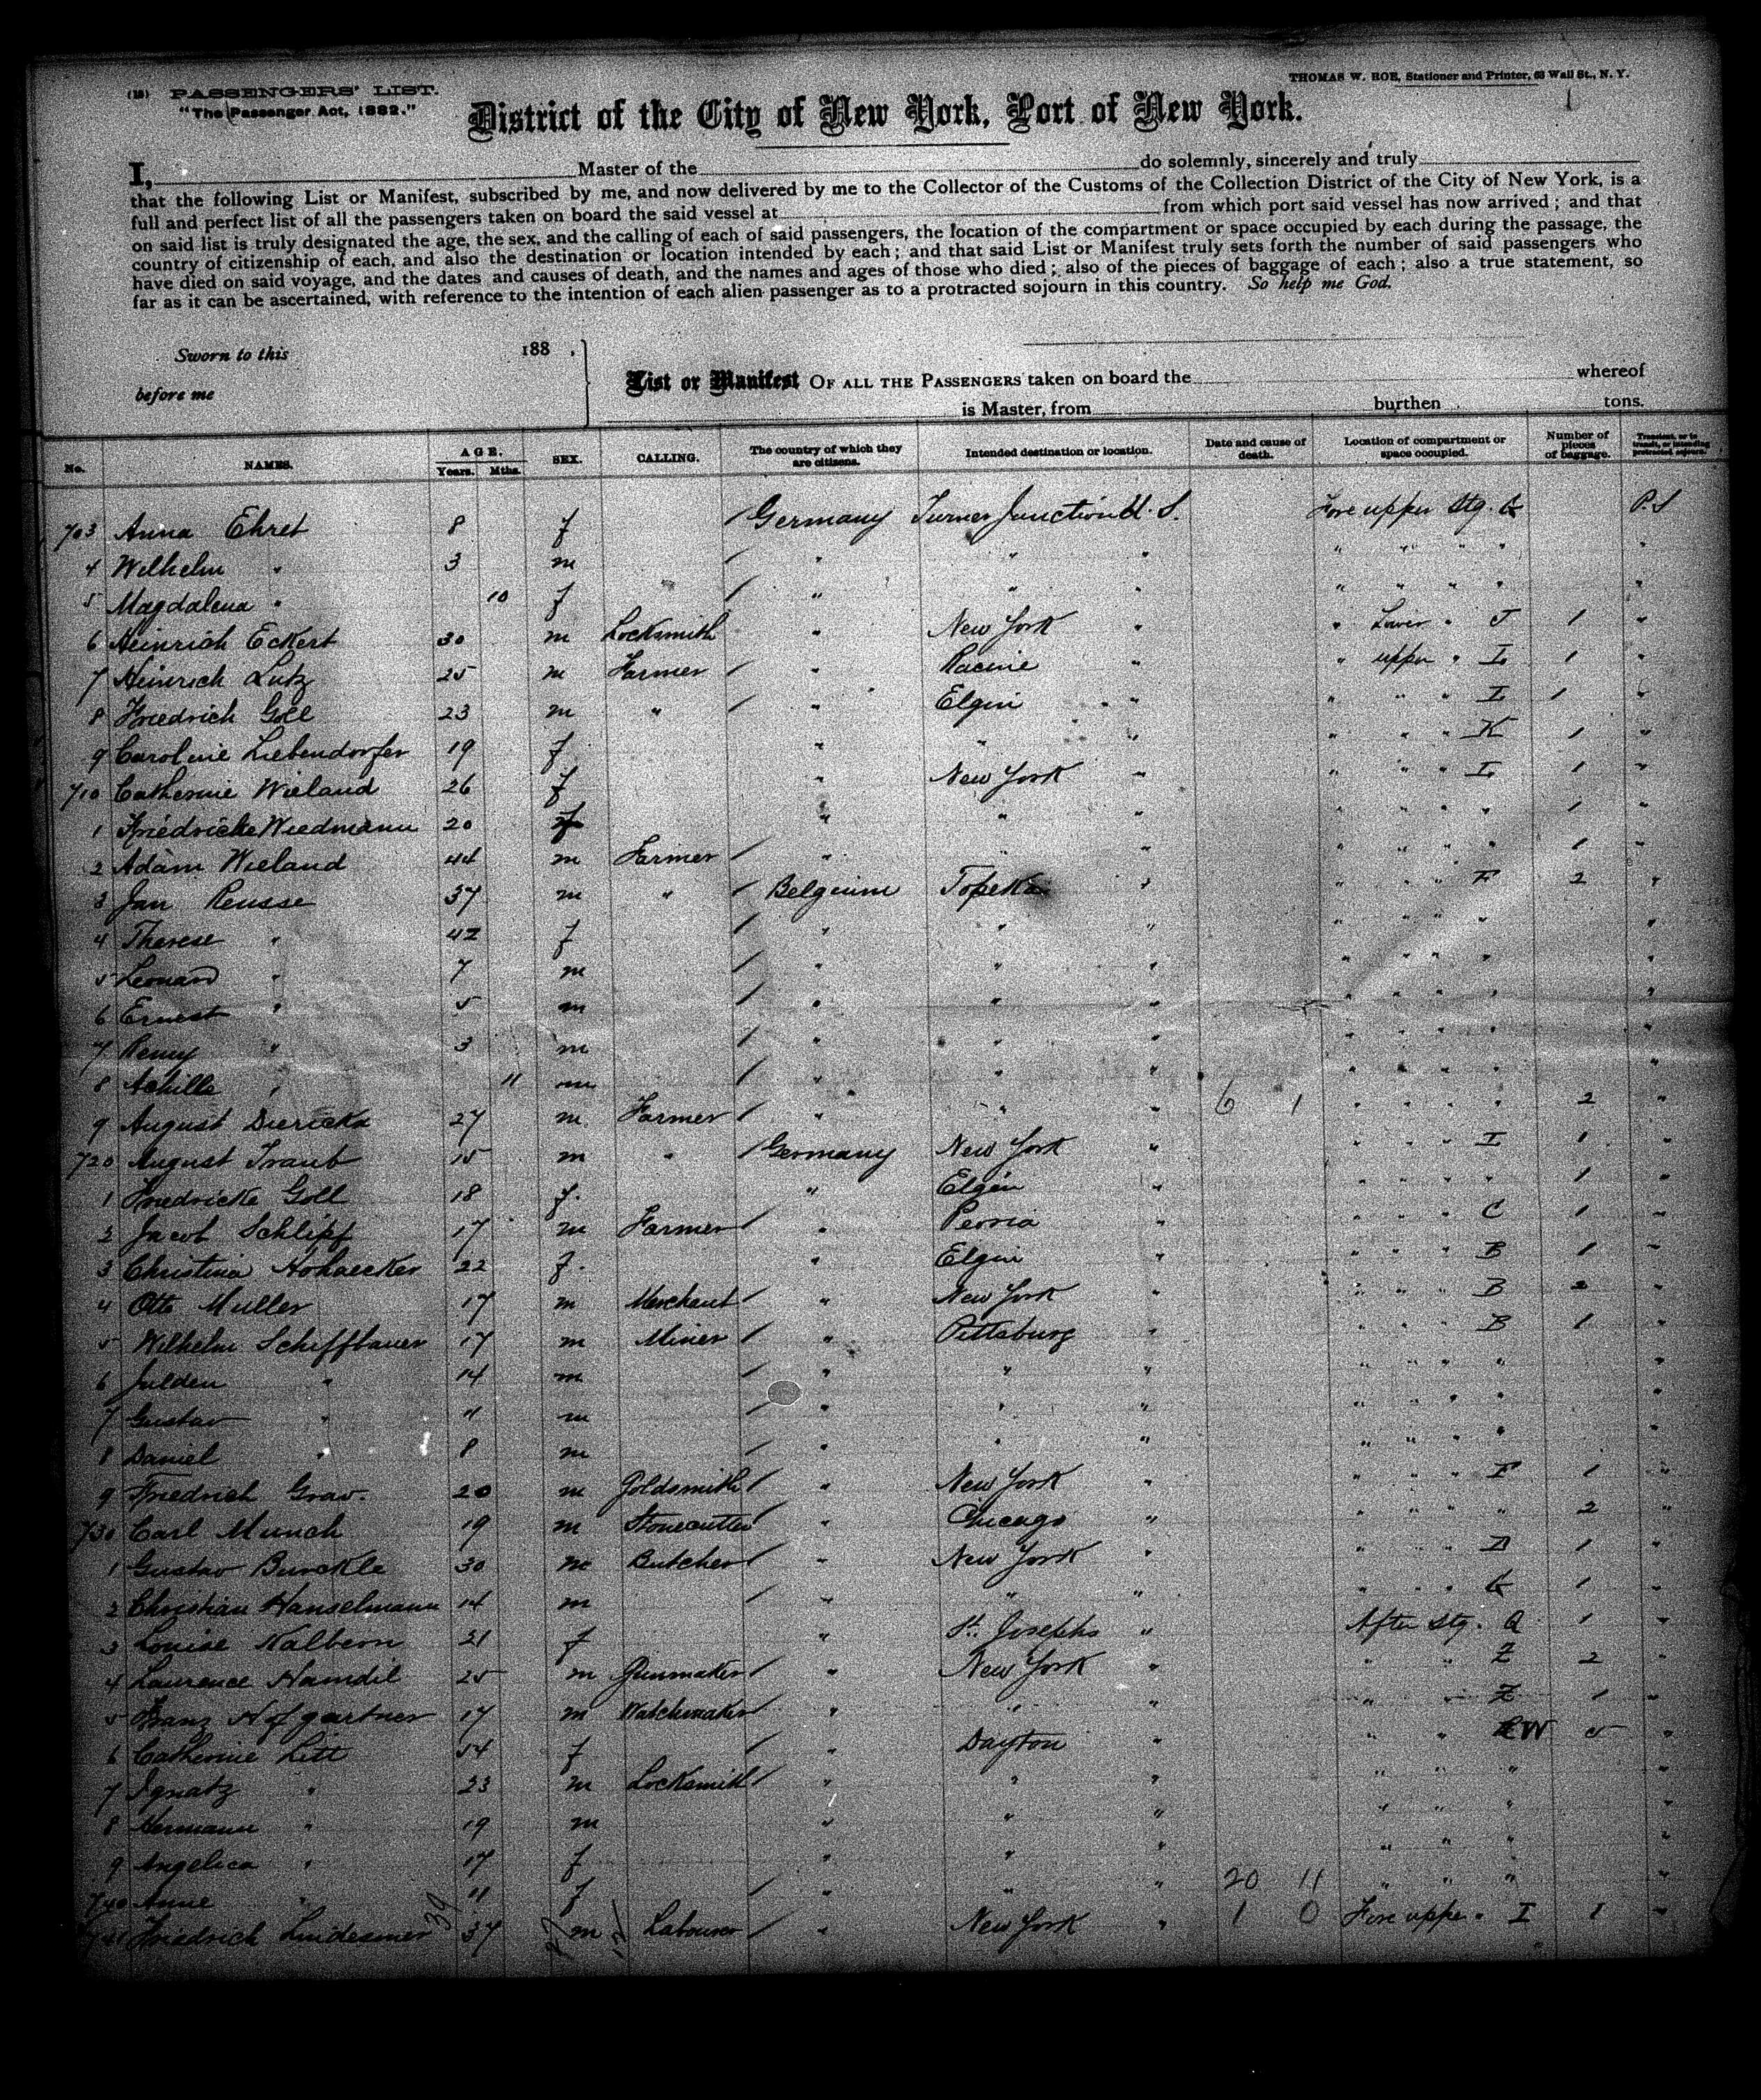 (18) PASSENGERS' LIST. THOMAS W. ROE, Stationer and Printer, 63 Wall St., N. Y.
"The Passenger Act, 1882."
District of the City of New York, Port of New York.
I, Master of the do solemnly, sincerely and truly
that the following List or Manifest, subscribed by me, and now delivered by me to the Collector of the Customs of the Collection District of the City of New York, is a
full and perfect list of all the passengers taken on board the said vessel at from which port said vessel has now arrived; and that
on said list is truly designated the age, the sex, and the calling of each of said passengers, the location of the compartment or space occupied by each during the passage, the
country of citizenship of each, and also the destination or location intended by each; and that said List or Manifest truly sets forth the number of said passengers who
have died on said voyage, and the dates and causes of death, and the names and ages of those who died; also of the pieces of baggage of each; also a true statement, so
far as it can be ascertained, with reference to the intention of each alien passenger as to a protracted sojourn in this country. So help me God.
Sworn to this 188 ,
before me
List or Manifest OF ALL THE PASSENGERS taken on board the whereof
is Master, from burthen tons.
No. NAMES. AGE. Years. Mths. SEX. CALLING. The country of which they are citizens. Intended destination or location. Date and cause of death. Location of compartment or space occupied. Number of pieces of baggage. Transient, or in transit, or intending protracted sojourn.
703 Anna Ehret 8 f / Germany Turner Junction U.S. Fore upper Stg. G P.S
4 Wilhelm " 3 m / " " " " " " " "
5 Magdalena " 10 f / " " " " " " " "
6 Heinrich Eckert 30 m Locksmith " New York " " Lower " J 1 "
7 Heinrich Lutz 25 m Farmer / " Racine " " upper " I 1 "
8 Friedrich Goll 23 m " / " Elgin " " " " I 1 "
9 Caroline Liebendorfer 19 f " " " " " " K 1 "
710 Catherine Wieland 26 f " New York " " " " I 1 "
1 Friedricke Wiedmann 20 f " " " " " " " 1 "
2 Adam Wieland 44 m Farmer / " " " " " " " 1 "
3 Jan Reusse 37 m " / Belgium Topeka " " " " F 2 "
4 Therese " 42 f / " " " " " " " "
5 Leonard " 7 m / " " " " " " " "
6 Ernest " 5 m / " " " " " " " "
7 Remy " 3 m / " " " " " " " "
8 Achille " 11 m / " " " " " " " "
9 August Diericks 27 m Farmer / " " " 6 1 " " " " 2 "
720 August Traub 15 m " / Germany New York " " " " I 1 "
1 Friedricke Goll 18 f. " Elgin " " " " " 1 "
2 Jacob Schlipf 17 m Farmer / " Peoria " " " " C 1 "
3 Christina Hohaecker 22 f. " Elgin " " " " B 1 "
4 Otto Muller 17 m Merchant / " New York " " " " B 2 "
5 Wilhelm Schiffbauer 17 m Miner / " Pittsburg " " " " B 1 "
6 Julden " 14 m / " " " " " " " "
7 Gustav " 11 m / " " " " " " " "
8 Daniel " 8 m / " " " " " " " "
9 Friedrich Grav. 20 m Goldsmith / " New York " " " " F 1 "
730 Carl Munch 19 m Stonecutter / " Chicago " " " " " 2 "
1 Gustav Burckle 30 m Butcher / " New York " " " " D 1 "
2 Christian Hanselmann 14 m / " " " " " " G 1 "
3 Louise Kalbern 21 f " St. Josephs " After Stg. Q 1 "
4 Laurence Hamdil 25 m Gunmaker / " New York " " " Z 2 "
5 Franz Hofgartner 17 m Watchmaker / " " " " " Z 1 "
6 Catherine Litt 54 f / " Dayton " " " W 5 "
7 Ignatz " 23 m Locksmith / " " " " " " "
8 Hermann " 19 m " " " " " " "
9 Angelica " 17 f " " " " " " "
740 Anne " 11 f / " " " 20 11 " " " "
741 Friedrich Lindesmer 37 m Labourer / " New York " 1 0 Fore upper " I 1 "